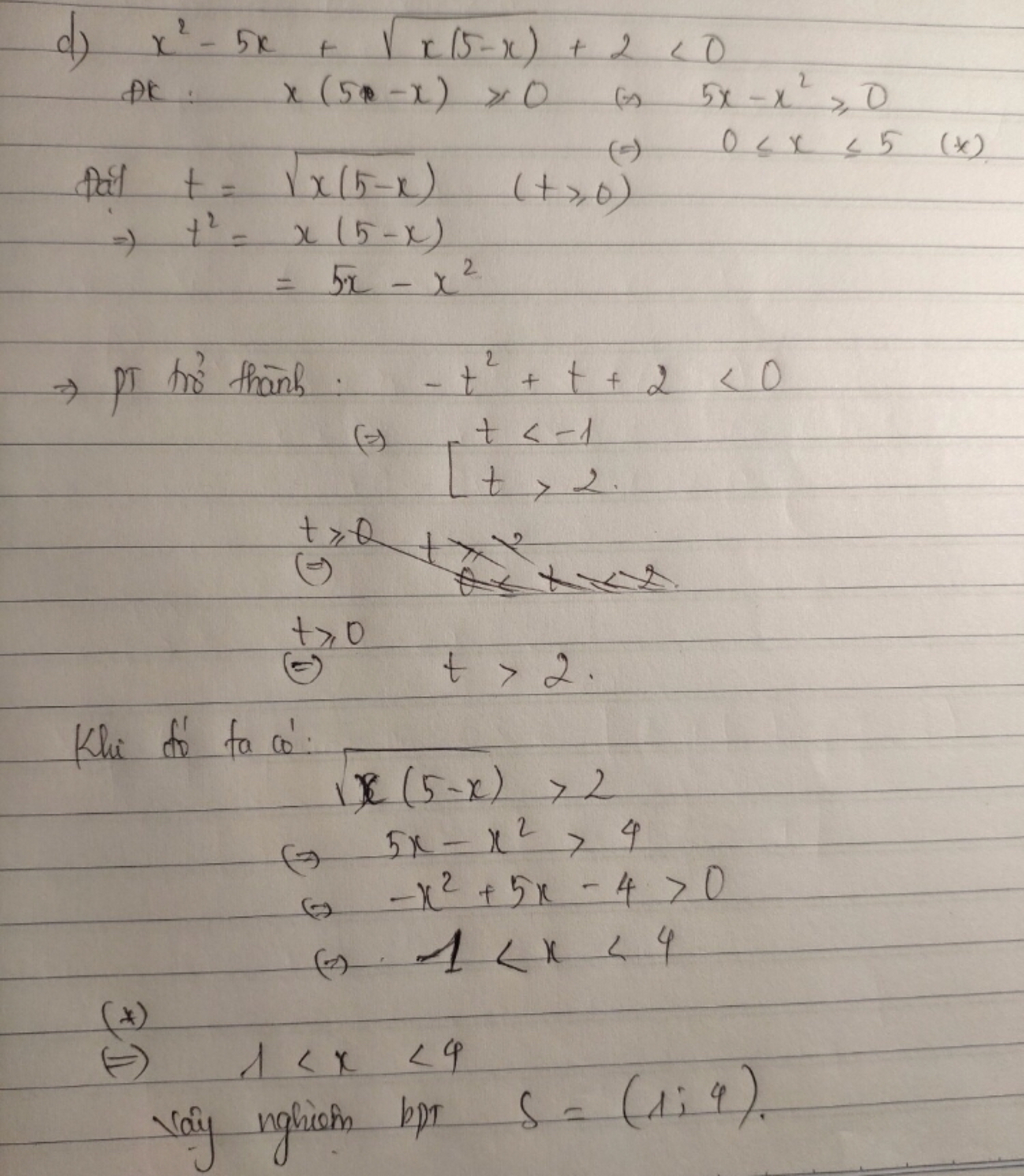 d) x² - 5x + √x(5-x) + 2 < 0
ĐK : x (5 - x) ≥ 0 (=) 5x - x² ≥ 0
(=) 0 ≤ x ≤ 5 (*)
Đặt t = √x(5-x) (t ≥ 0)
=) t² = x (5-x)
= 5x - x²
=> PT trở thành : - t² + t + 2 < 0
(=) [ t < -1
t > 2.
t ≥ 0
(=)
t ≥ 0
(=) t > 2.
Khi đó ta có:
√x (5-x) > 2
(=) 5x - x² > 4
(=) -x² + 5x - 4 > 0
(=) 1 < x < 4
(*)
(=) 1 < x < 4
Vậy nghiệm bpt S = (1; 4).